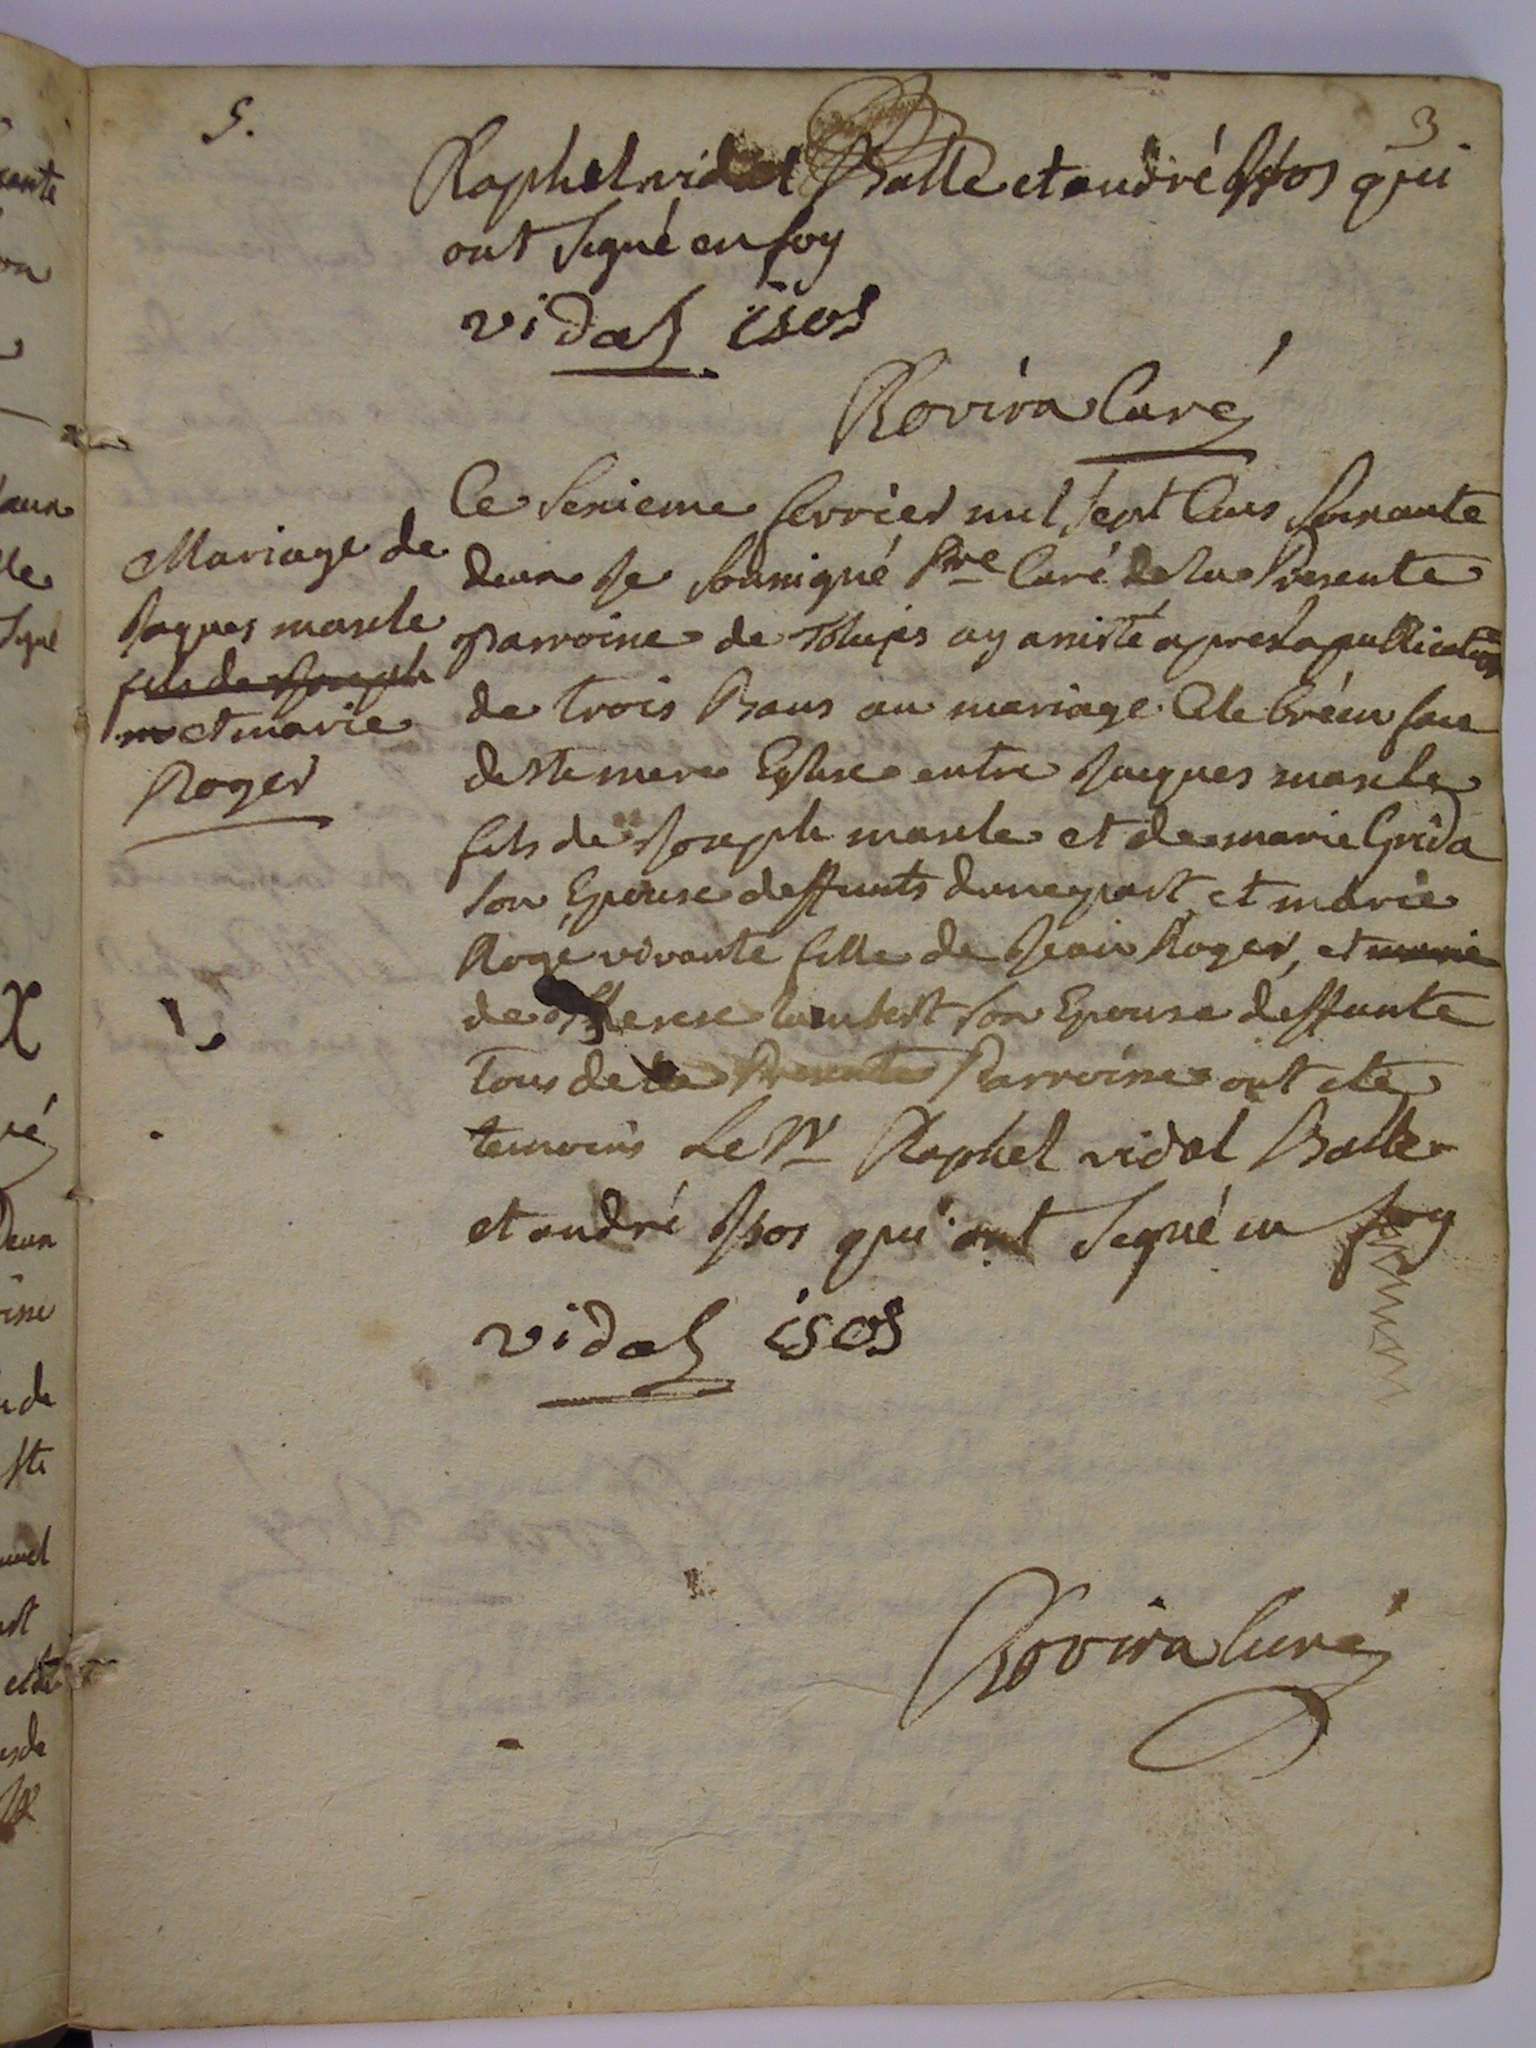 5.
3
Raphel vidal Balle et andré Isos qui
ont signé en foy
vidal isos
Rovira Curé
Mariage de
Jaques maxle
fils de Joseph
et marie
Roger
Ce senieme fevrier mil sept Cens soixante
deux Je soussigné Pre Curé de la Presente
Parroisse de Thuïs ay assisté apres la publication
de trois Bans au mariage Celebré en face
de Ste mere Eglise entre Jacques maxle
fils de Joseph maxle et de marie Grida
son Epouse deffunts dune part, et marie
Rogé vivante fille de Jean Roger, et marie
de Therese lambert son Epouse deffunte
tous de la Presente Parroisse ont ete
temoins Le Sr Raphel vidal Balle
et andré Isos qui ont Signé en foy
vidal isos
Rovira Curé